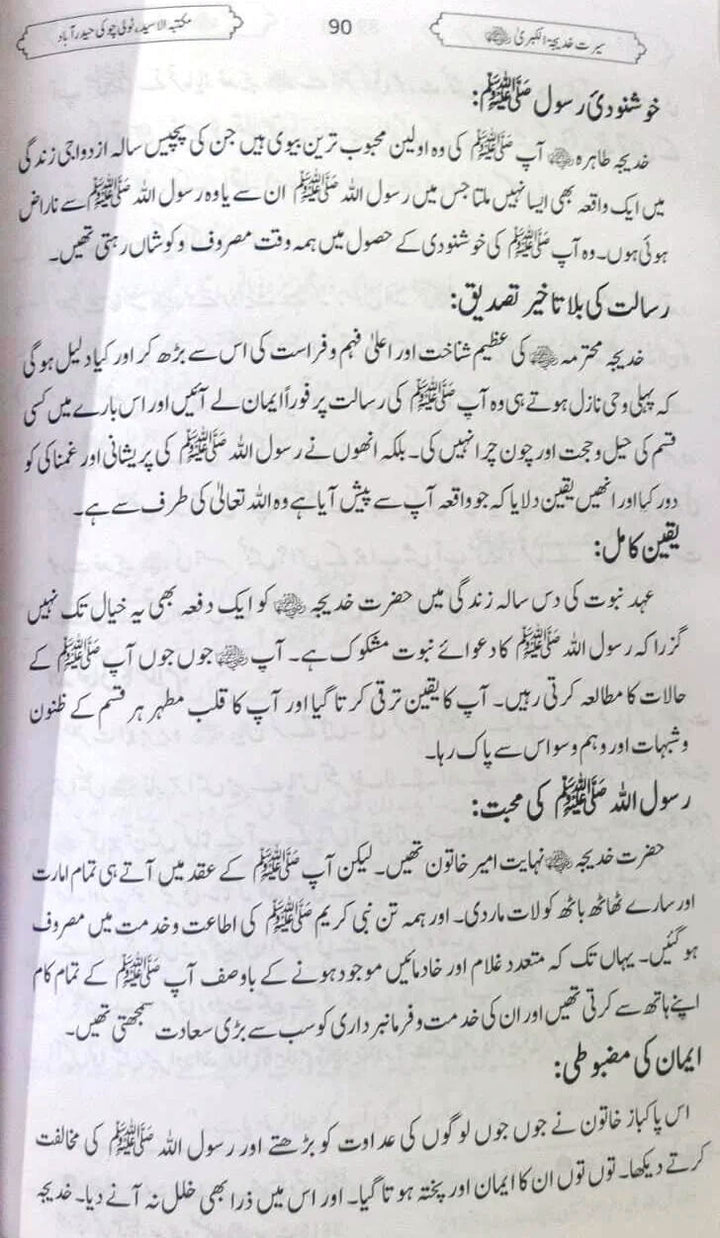 سیرت خدیجۃ الکبریٰ رضی اللہ عنہا
90
مکتبہ الاسید، نولی چوکی حیدرآباد
خوشنودیٔ رسول ﷺ:
خدیجہ طاہرہ رضی اللہ عنہا آپ ﷺ کی وہ اولین محبوب ترین بیوی ہیں جن کی پچیس سالہ ازدواجی زندگی
میں ایک واقعہ بھی ایسا نہیں ملتا جس میں رسول اللہ ﷺ ان سے یا وہ رسول اللہ ﷺ سے ناراض
ہوئی ہوں۔ وہ آپ ﷺ کی خوشنودی کے حصول میں ہمہ وقت مصروف و کوشاں رہتی تھیں۔
رسالت کی بلا تاخیر تصدیق:
خدیجہ محترمہ رضی اللہ عنہا کی عظیم شناخت اور اعلیٰ فہم و فراست کی اس سے بڑھ کر اور کیا دلیل ہوگی
کہ پہلی وحی نازل ہوتے ہی وہ آپ ﷺ کی رسالت پر فوراً ایمان لے آئیں اور اس بارے میں کسی
قسم کی حیل و حجت اور چون چرا نہیں کی۔ بلکہ انھوں نے رسول اللہ ﷺ کی پریشانی اور غمناکی کو
دور کیا اور انھیں یقین دلایا کہ جو واقعہ آپ سے پیش آیا ہے وہ اللہ تعالیٰ کی طرف سے ہے۔
یقین کامل:
عہد نبوت کی دس سالہ زندگی میں حضرت خدیجہ رضی اللہ عنہا کو ایک دفعہ بھی یہ خیال تک نہیں
گزرا کہ رسول اللہ ﷺ کا دعوائے نبوت مشکوک ہے۔ آپ رضی اللہ عنہا جوں جوں آپ ﷺ کے
حالات کا مطالعہ کرتی رہیں۔ آپ کا یقین ترقی کرتا گیا اور آپ کا قلب مطہر ہر قسم کے ظنون
و شبہات اور وہم وسواس سے پاک رہا۔
رسول اللہ ﷺ کی محبت:
حضرت خدیجہ رضی اللہ عنہا نہایت امیر خاتون تھیں۔ لیکن آپ ﷺ کے عقد میں آتے ہی تمام امارت
اور سارے ٹھاٹھ باٹھ کو لات مار دی۔ اور ہمہ تن نبی کریم ﷺ کی اطاعت و خدمت میں مصروف
ہو گئیں۔ یہاں تک کہ متعدد غلام اور خادمائیں موجود ہونے کے باوصف آپ ﷺ کے تمام کام
اپنے ہاتھ سے کرتی تھیں اور ان کی خدمت و فرمانبرداری کو سب سے بڑی سعادت سمجھتی تھیں۔
ایمان کی مضبوطی:
اس پاکباز خاتون نے جوں جوں لوگوں کی عداوت کو بڑھتے اور رسول اللہ ﷺ کی مخالفت
کرتے دیکھا۔ توں توں ان کا ایمان اور پختہ ہوتا گیا۔ اور اس میں ذرا بھی خلل نہ آنے دیا۔ خدیجہ